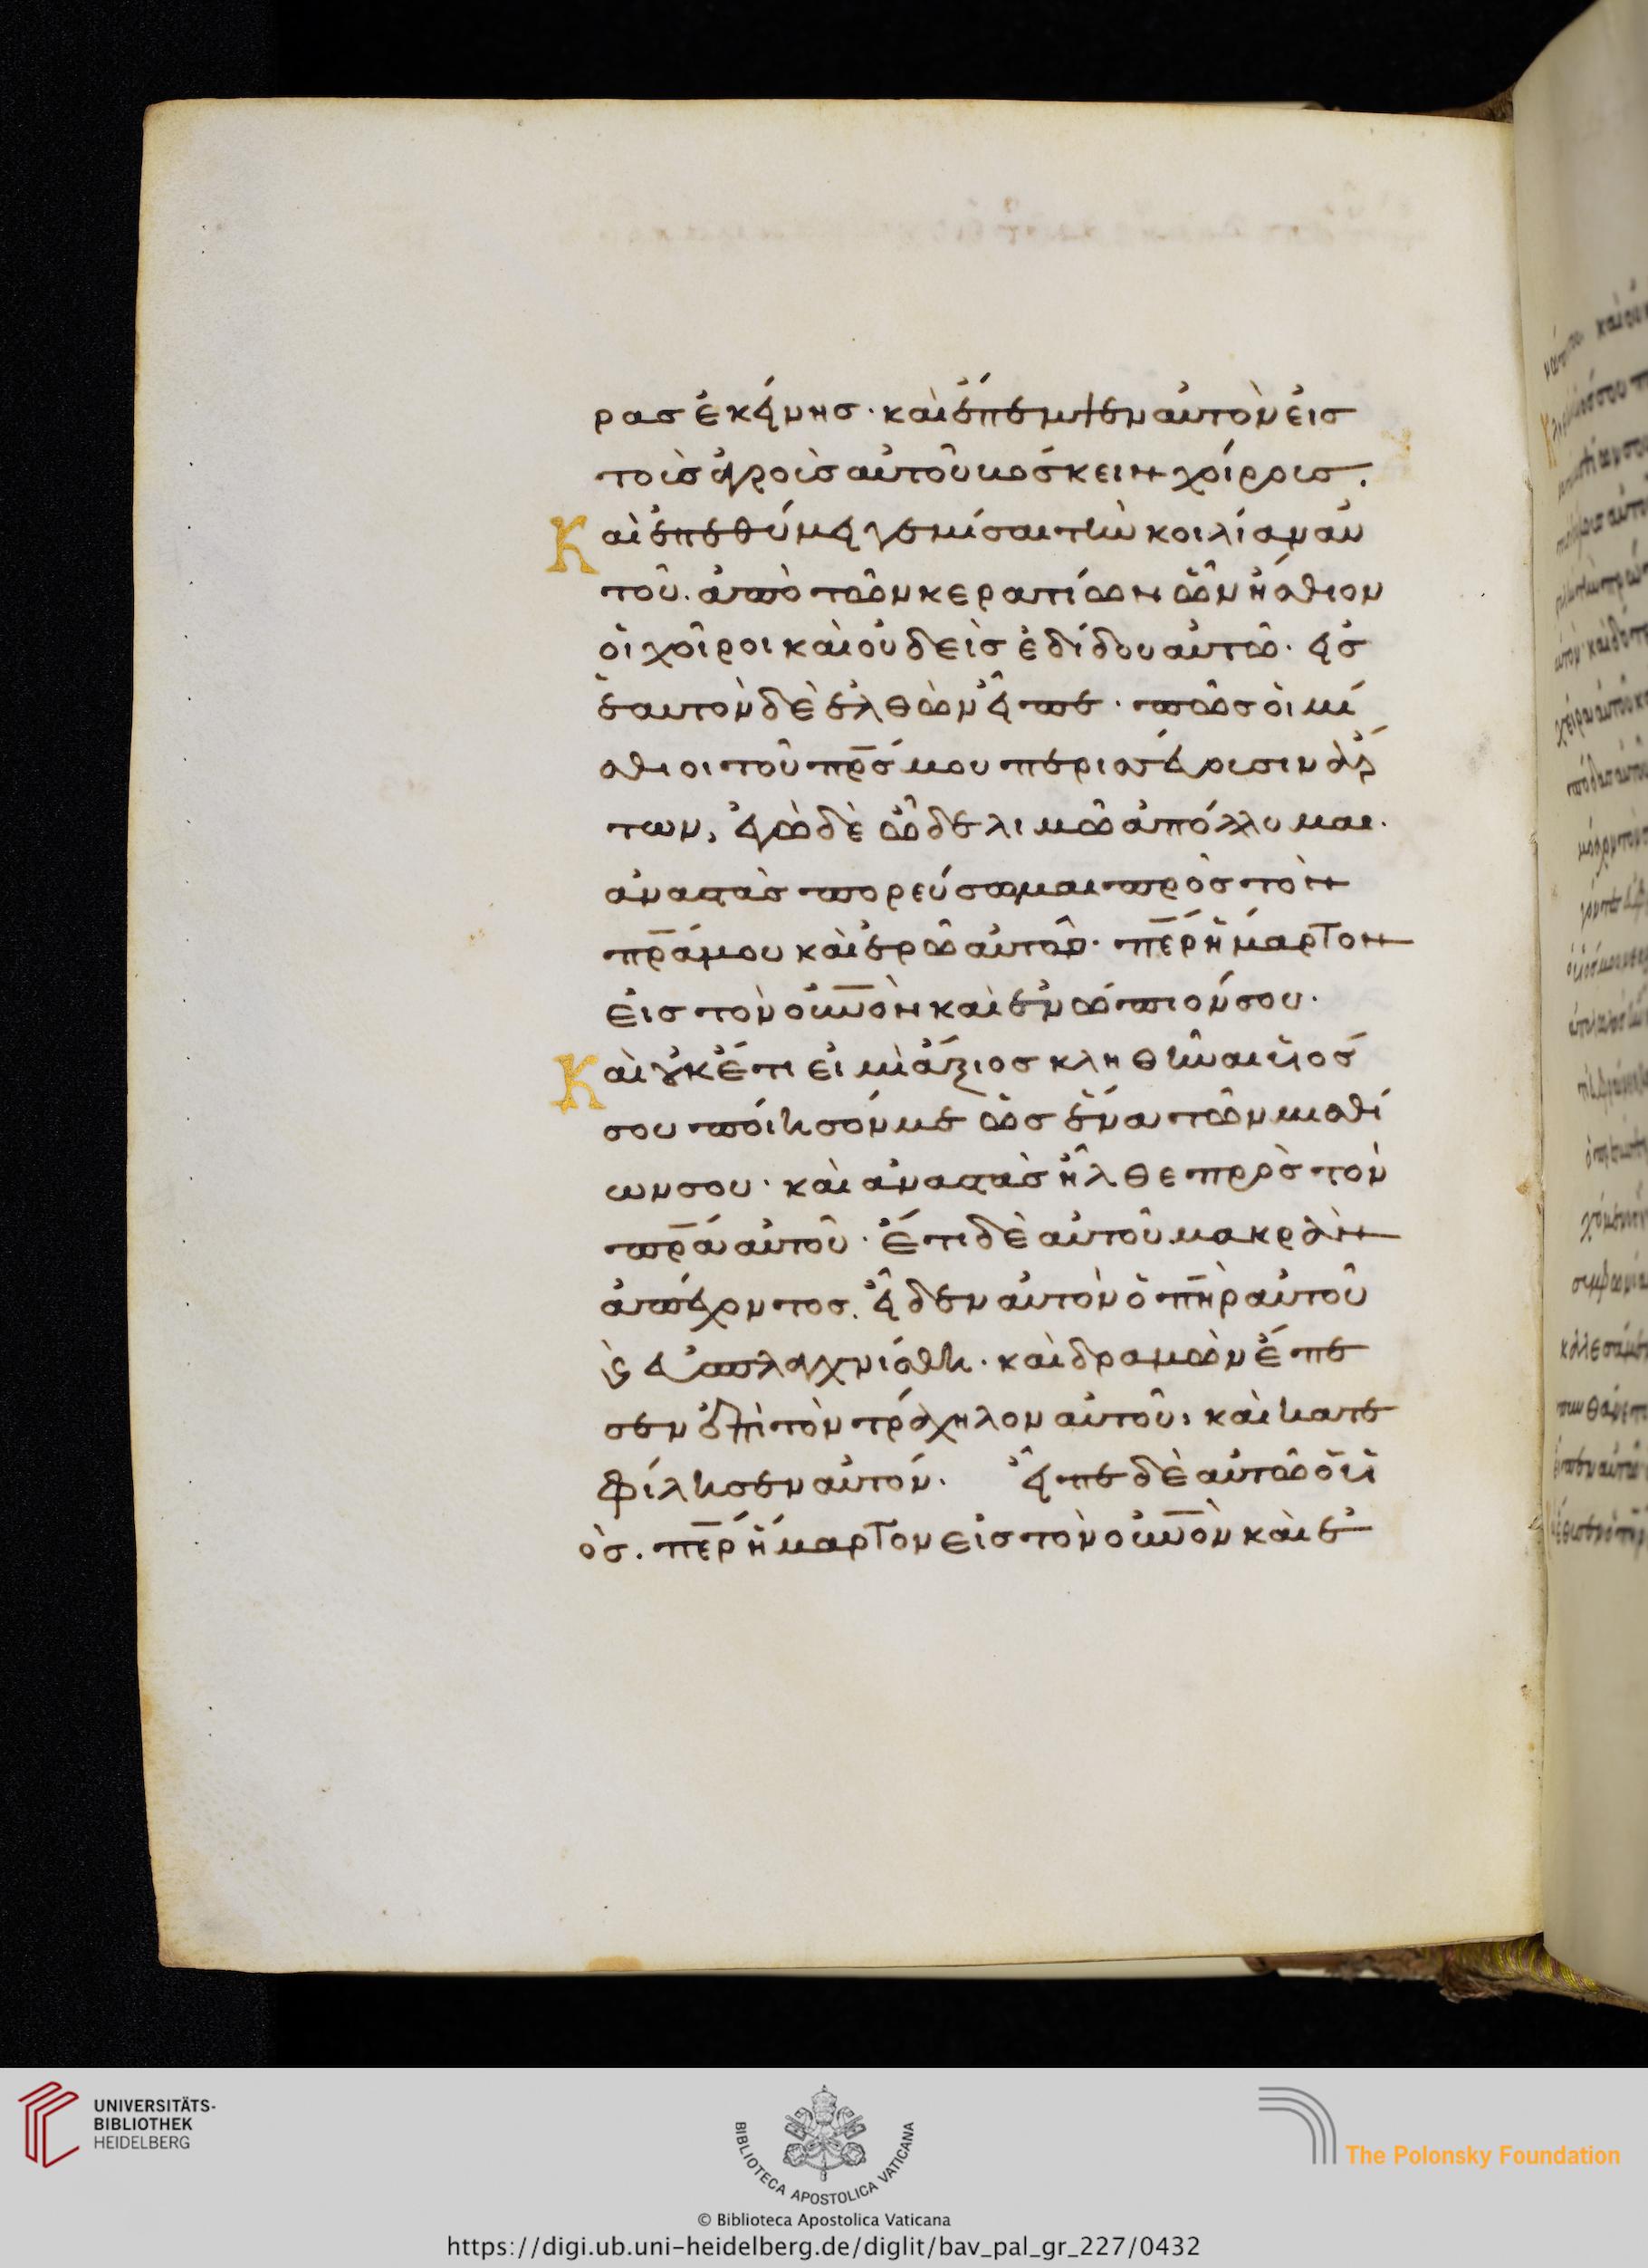 ρας ἐκείνης· καὶ ἔπεμψεν αὐτὸν εἰς
τοὺς ἀγροὺς αὐτοῦ βόσκειν χοίρους.
Καὶ ἐπεθύμει γεμίσαι τὴν κοιλίαν αὐ
τοῦ. ἀπὸ τῶν κερατίων ὧν ἤσθιον
οἱ χοῖροι καὶ οὐδεὶς ἐδίδου αὐτῶ· εἰς
ἑαυτὸν δὲ ἐλθὼν εἶπε· πόσοι μί
σθιοι τοῦ πρς μου περισσεύουσιν ἄρ
των, ἐγὼ δὲ ὧδε λιμῶ ἀπόλλυμαι.
ἀναστὰς πορεύσομαι πρὸς τὸν
πρα μου καὶ ἐρῶ αὐτῶ· περ ἥμαρτον
εἰς τὸν οὐνον καὶ ἐνώπιόν σου.
Καὶ οὐκέτι εἰμὶ ἄξιος κληθῆναι υἱός
σου ποίησόν με ὡς ἕνα τῶν μισθί
ων σου· καὶ ἀναστὰς ἦλθε πρὸς τὸν
πρα αὐτοῦ· ἔτι δὲ αὐτοῦ μακρὰν
ἀπέχοντος. εἶδεν αὐτὸν ὁ πηρ αὐτοῦ
καὶ εὐσπλαγχνίσθη· καὶ δραμὼν ἔπε
σεν ἐπὶ τὸν τράχηλον αὐτοῦ, καὶ κατε
φίλησεν αὐτόν. Εἶπε δὲ αὐτῶ ὁ υἱ
ός. περ ἥμαρτον εἰς τὸν οὐνον καὶ ἐ
UNIVERSITÄTS-
BIBLIOTHEK
HEIDELBERG
BIBLIOTECA APOSTOLICA VATICANA
The Polonsky Foundation
© Biblioteca Apostolica Vaticana
https://digi.ub.uni-heidelberg.de/diglit/bav_pal_gr_227/0432